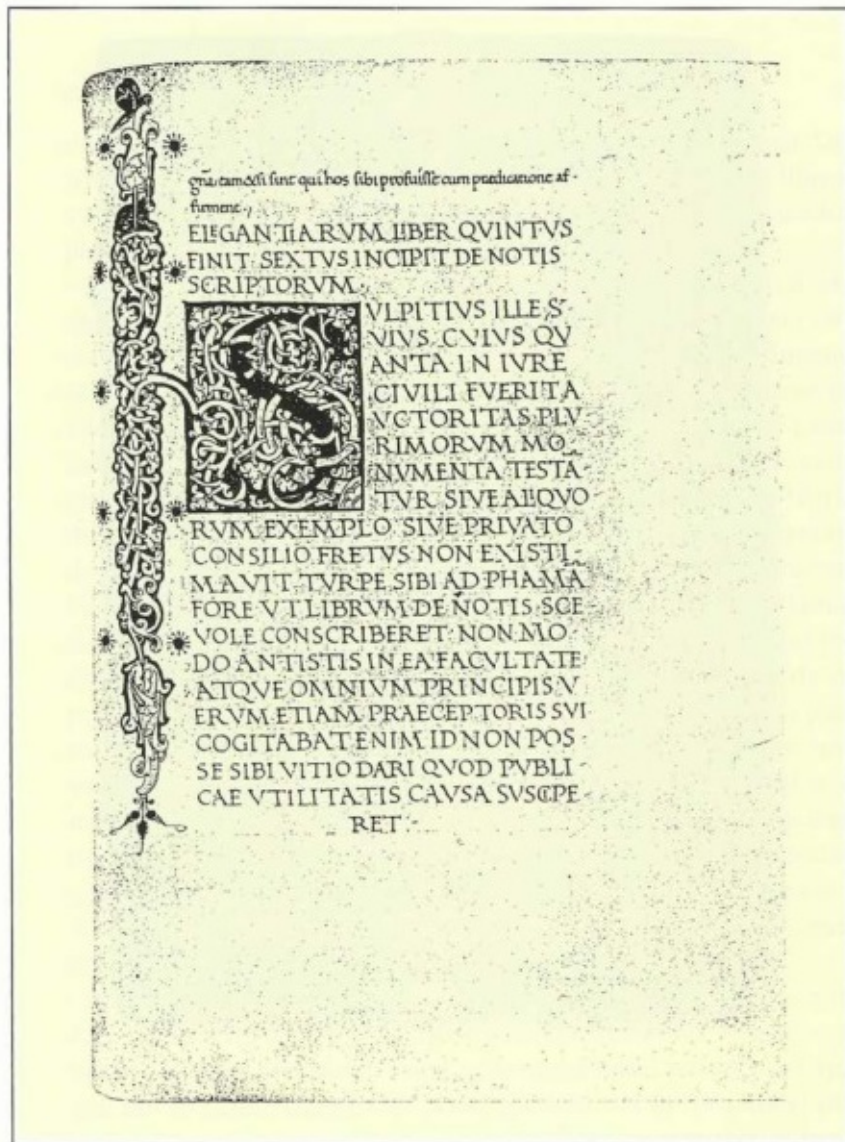 gna, tam&si sint qui hos sibi profuisse cum praedicatione af-
firment.,
ELEGANTIARVM LIBER QVINTVS
FINIT SEXTVS INCIPIT DE NOTIS
SCRIPTORVM.
SVLPITIVS ILLE, S-
VIVS CVIVS QV
ANTA IN IVRE
CIVILI FVERIT A
VCTORITAS PLV
RIMORVM MO-
NVMENTA TESTA
TVR SIVE ALIQVO
RVM EXEMPLO SIVE PRIVATO
CONSILIO FRETVS NON EXISTI-
MAVIT TVRPE SIBI AD PHAMA
FORE VT LIBRVM DE NOTIS SCE
VOLE CONSCRIBERET NON MO
DO ANTISTIS IN EA FACVLTATE
ATQVE OMNIVM PRINCIPIS V
ERVM ETIAM PRAECEPTORIS SVI
COGITABAT ENIM ID NON POS-
SE SIBI VITIO DARI QVOD PVBLI-
CAE VTILITATIS CAVSA SVSCIPE-
RET.